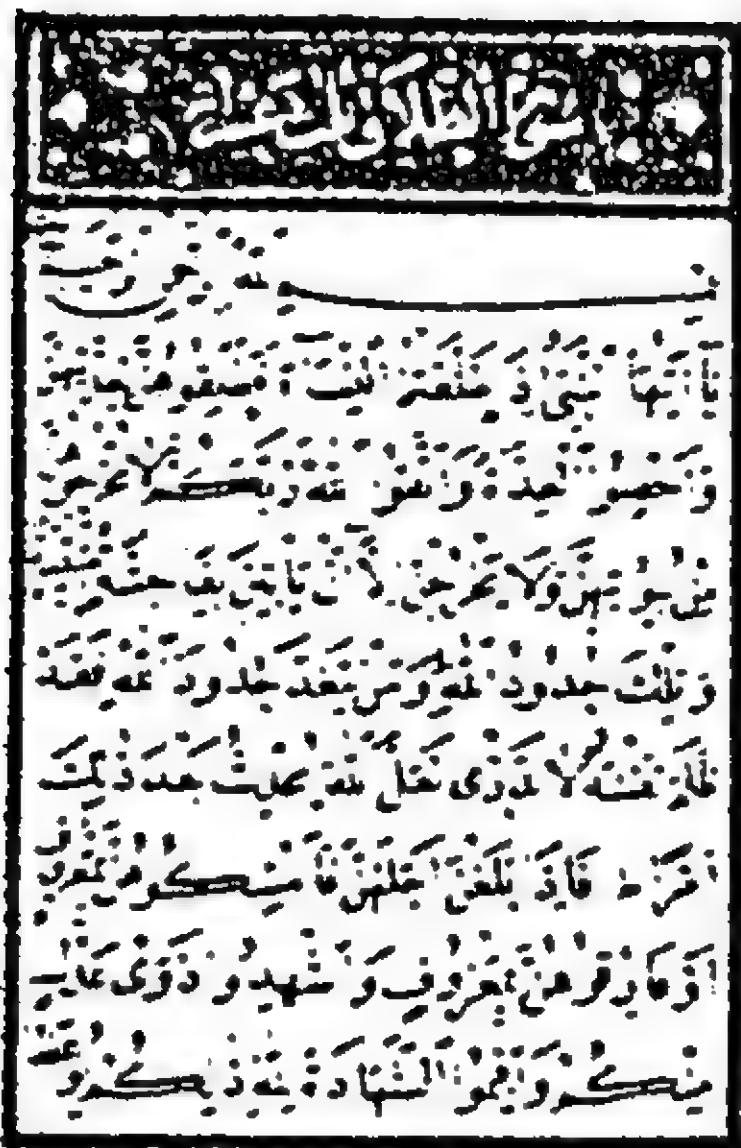 بسم الله الرحمن الرحيم
يا أيها النبي إذا طلقتم النساء فطلقوهن لعدتهن
وأحصوا العدة واتقوا الله ربكم لا تخرجوهن
من بيوتهن ولا يخرجن إلا أن يأتين بفاحشة مبينة
وتلك حدود الله ومن يتعد حدود الله فقد
ظلم نفسه لا تدري لعل الله يحدث بعد ذلك
أمرا فإذا بلغن أجلهن فأمسكوهن بمعروف
أو فارقوهن بمعروف وأشهدوا ذوي عدل
منكم وأقيموا الشهادة لله ذلكم